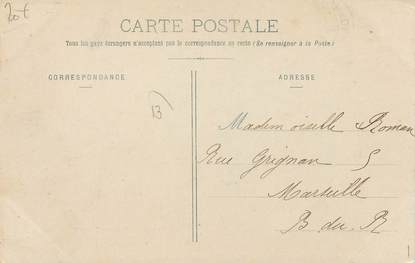 20€
CARTE POSTALE
Tous les pays étrangers n'acceptent pas la correspondance au recto (Se renseigner à la Poste)
CORRESPONDANCE
ADRESSE
13
Mademoiselle Roman
Rue Grignan 5
Marseille
B du R